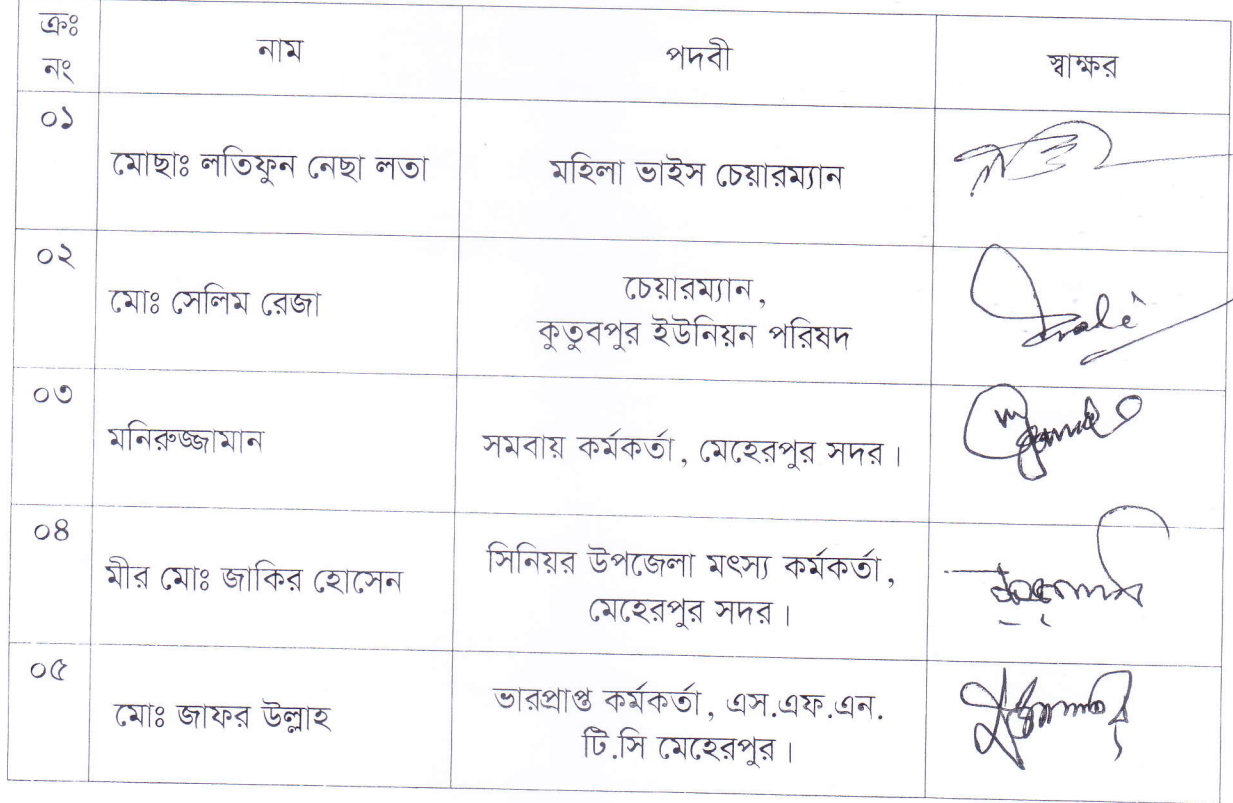 ক্রঃ
নং
নাম
পদবী
স্বাক্ষর
০১
মোছাঃ লতিফুন নেছা লতা
মহিলা ভাইস চেয়ারম্যান
০২
মোঃ সেলিম রেজা
চেয়ারম্যান,
কুতুবপুর ইউনিয়ন পরিষদ
০৩
মনিরুজ্জামান
সমবায় কর্মকর্তা, মেহেরপুর সদর।
০৪
মীর মোঃ জাকির হোসেন
সিনিয়র উপজেলা মৎস্য কর্মকর্তা,
মেহেরপুর সদর।
০৫
মোঃ জাফর উল্লাহ
ভারপ্রাপ্ত কর্মকর্তা, এস.এফ.এন.
টি.সি মেহেরপুর।